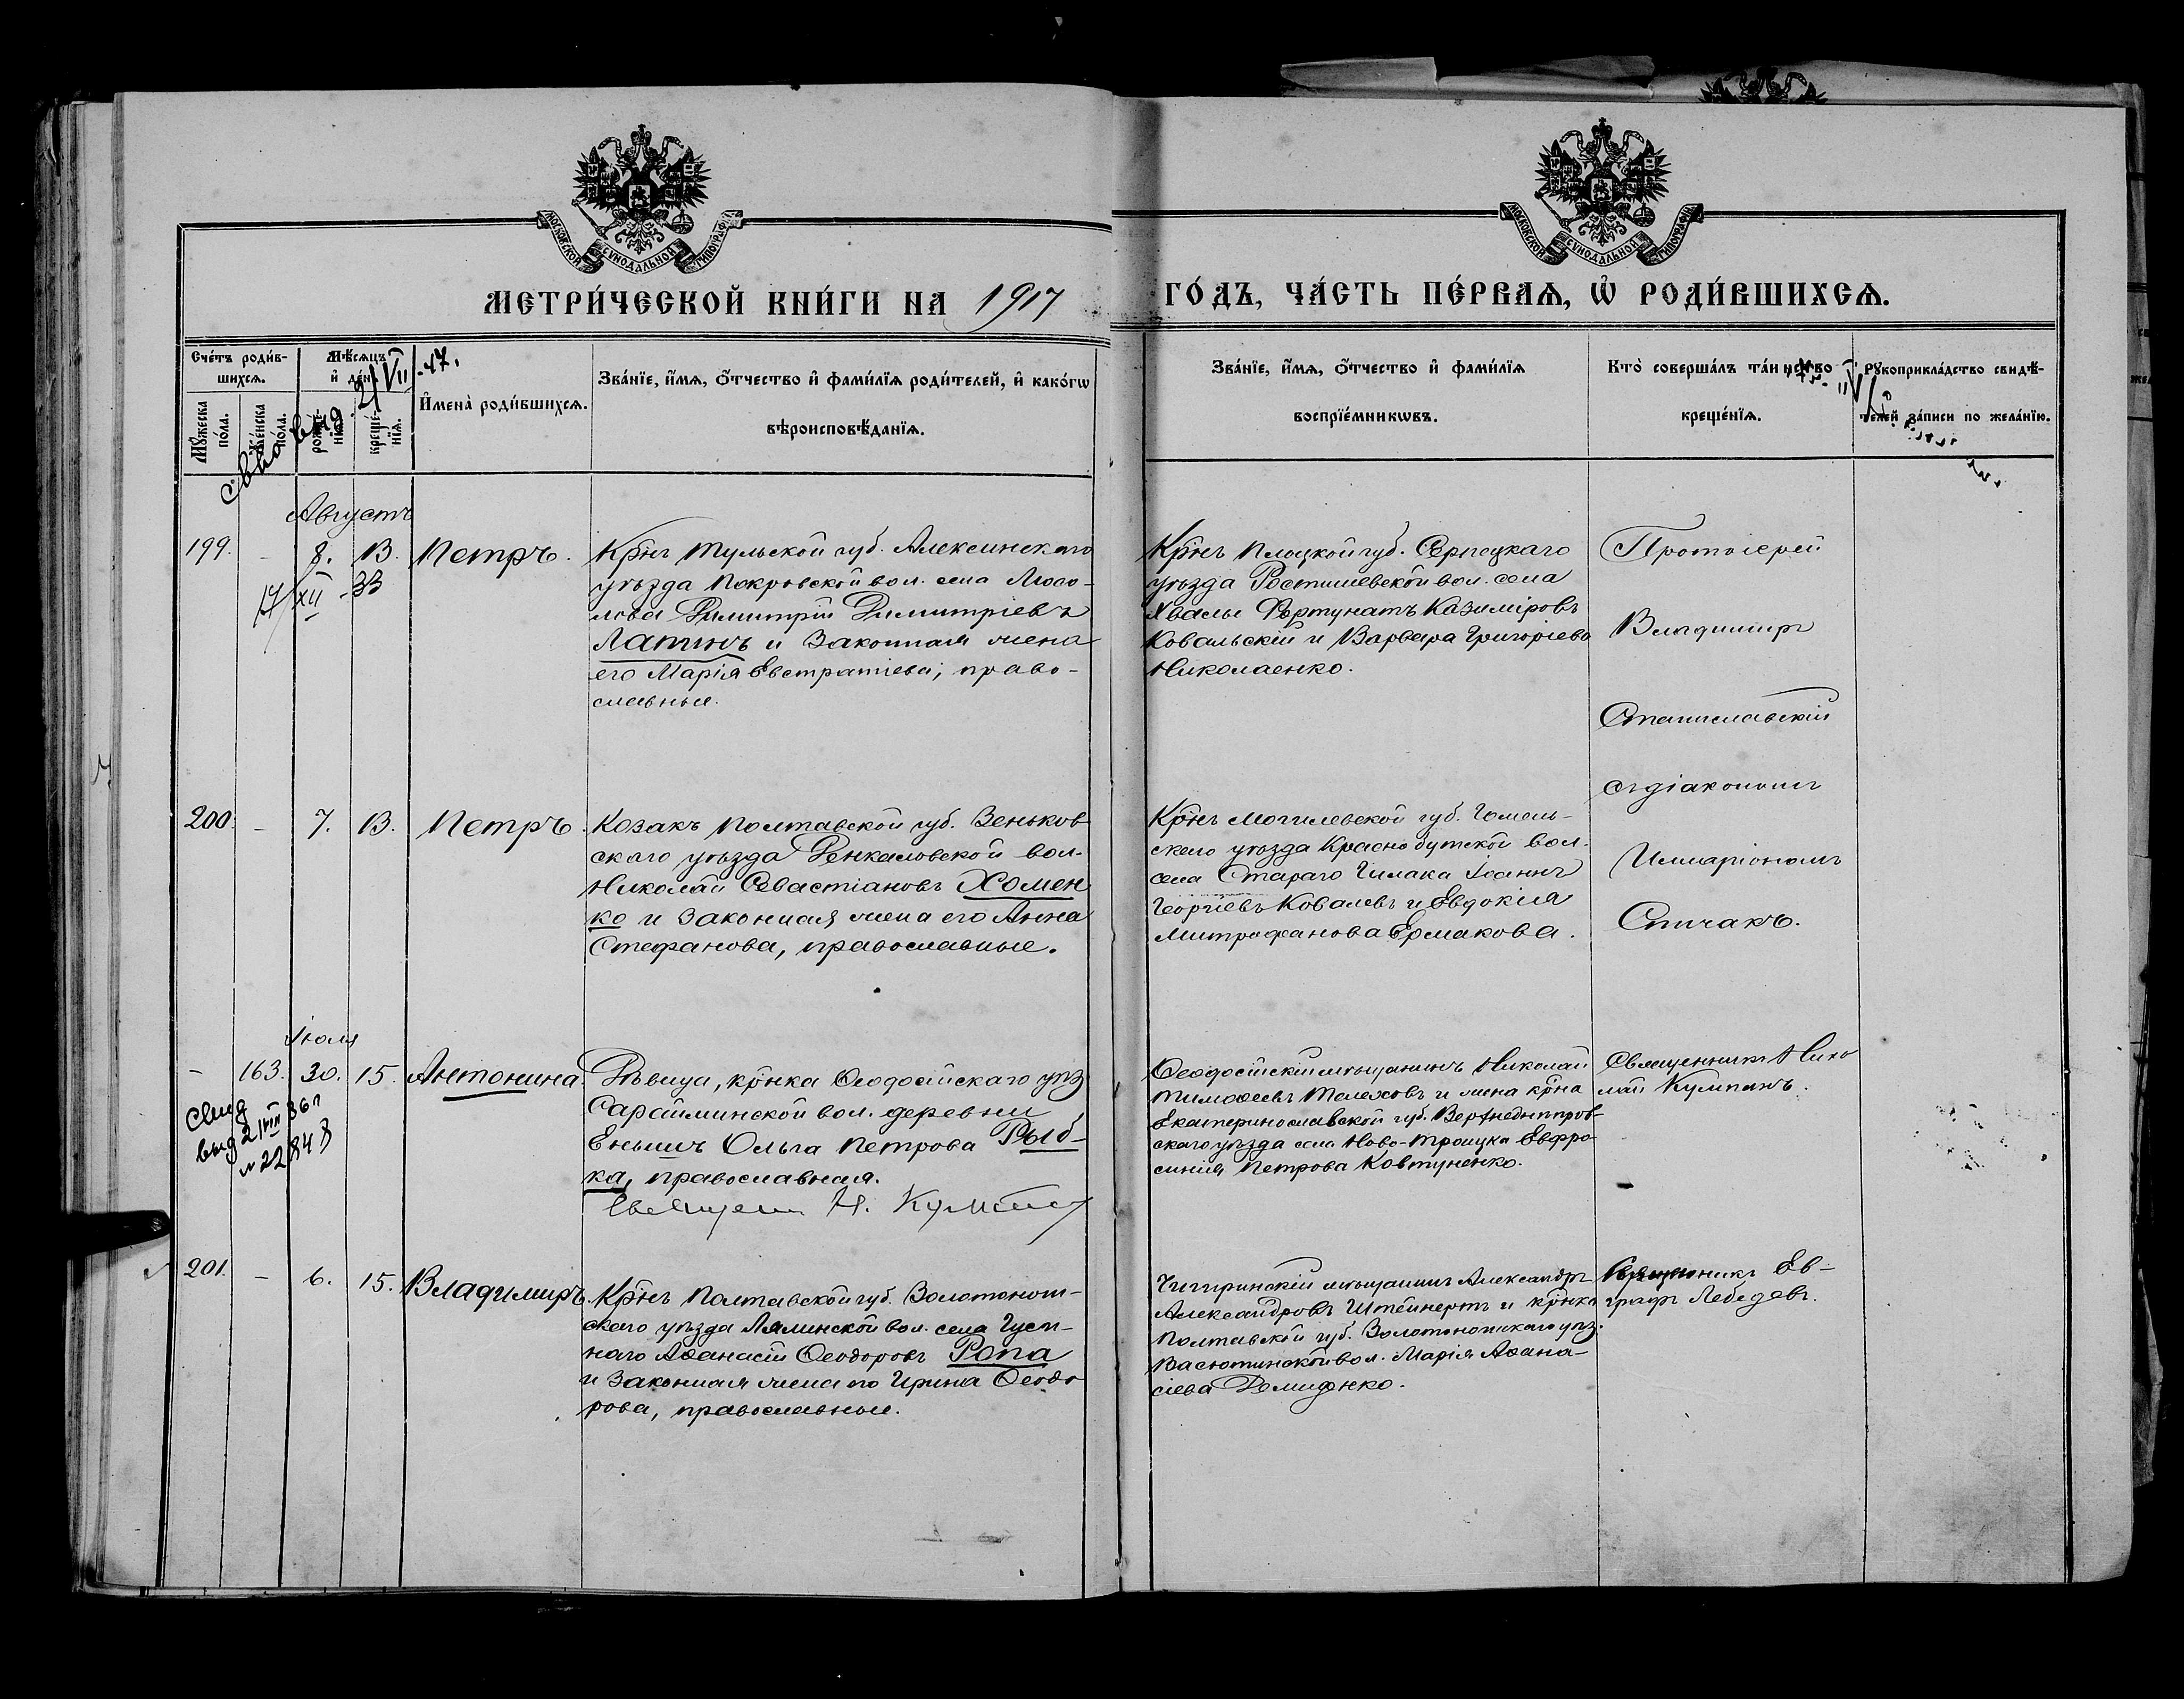 МОСКОВСКОЙ СѴНОДАЛЬНОЙ ТИПОГРАФІИ
МОСКОВСКОЙ СѴНОДАЛЬНОЙ ТИПОГРАФІИ
МЕТРИ́ЧЕСКОЙ КНИ́ГИ НА 1917 ГО́ДЪ, ЧА́СТЬ ПЕ́РВАѦ, Ѡ҆ РОДИ́ВШИХСѦ.
Сче́тъ роди́в-
шихсѧ.
Мꙋ́жеска по́ла.
Же́нска по́ла.
Мѣ́сѧцъ
и҆ де́нь.
рожде́-
нїѧ.
креще́-
нїѧ.
И҆мена̀ роди́вшихсѧ.
Зва́нїе, и҆́мѧ, ѻ҆́тчество и҆ фами́лїѧ роди́телей, и҆ како́гѡ
вѣроисповѣ́данїѧ.
Зва́нїе, и҆́мѧ, ѻ҆́тчество и҆ фами́лїѧ
воспрїе́мникѡвъ.
Кто̀ соверша́лъ та́инство
креще́нїѧ.
Рꙋкоприкла́дство свидѣ́-
телей за́писи по жела́нїю.
Августъ
199. - 8. 13. Петръ.
17/XII - 33
Кр̃нъ Тульской губ. Алексинскаго
уѣзда Покровской вол. села
Димитрій Димитріевъ
Латинъ и законная жена
его Марія Евстратіева, право-
славные.
Кр̃нъ Плоцкой губ. Серпецкаго
уѣзда вол. села
Хвалы Фортунатъ Казиміровъ
Ковальскій и Варвара Григоріева
Николаенко.
Протоіерей
Владимиръ
Станиславскій
съ діакономъ
Илларіономъ
Спичакъ.
200. - 7. 13. Петръ.
Козакъ Полтавской губ. Зеньков-
скаго уѣзда вол.
Николай Севастіановъ Хомен
ко и законная жена его Анна
Стефанова, православные.
Кр̃нъ Могилевской губ. Гомель-
скаго уѣзда Краснобутской вол.
села Стараго Іоаннъ
Георгіевъ Ковалевъ и Евдокія
Митрофанова Ермакова.
Іюля
- 163. 30. 15. Антонина.
Свид
выд 2/VIII 36 г
№ 22848
Дѣвица, кр̃нка Ѳеодосійскаго уѣз
Сарайминской вол. деревни
Ольга Петрова Рыб-
ка, православная.
Священ Н. Кумпан
Ѳеодосійскій мѣщанинъ Николай
Тимоѳеевъ Телеховъ и жена кр̃на
Екатеринославской губ. Верхнеднѣпров-
скаго уѣзда села Ново-Троицка Евфро-
синія Петрова Ковтуненко.
Священникъ Нико
лай Кумпанъ.
201. - 6. 15. Владимиръ.
Кр̃нъ Полтавской губ. Золотонош-
скаго уѣзда Лялинской вол. села Густ-
наго Аѳанасій Ѳеодоровъ Ропа
и законная жена его Ирина Ѳеодо
рова, православные.
Чигиринскій мѣщанинъ Александръ
Александровъ Штейнертъ и кр̃нка
Полтавской губ. Золотоношскаго уѣз.
Васютинской вол. Марія Аѳана-
сіева Демиденко.
Священникъ Ев-
графъ Лебедевъ.